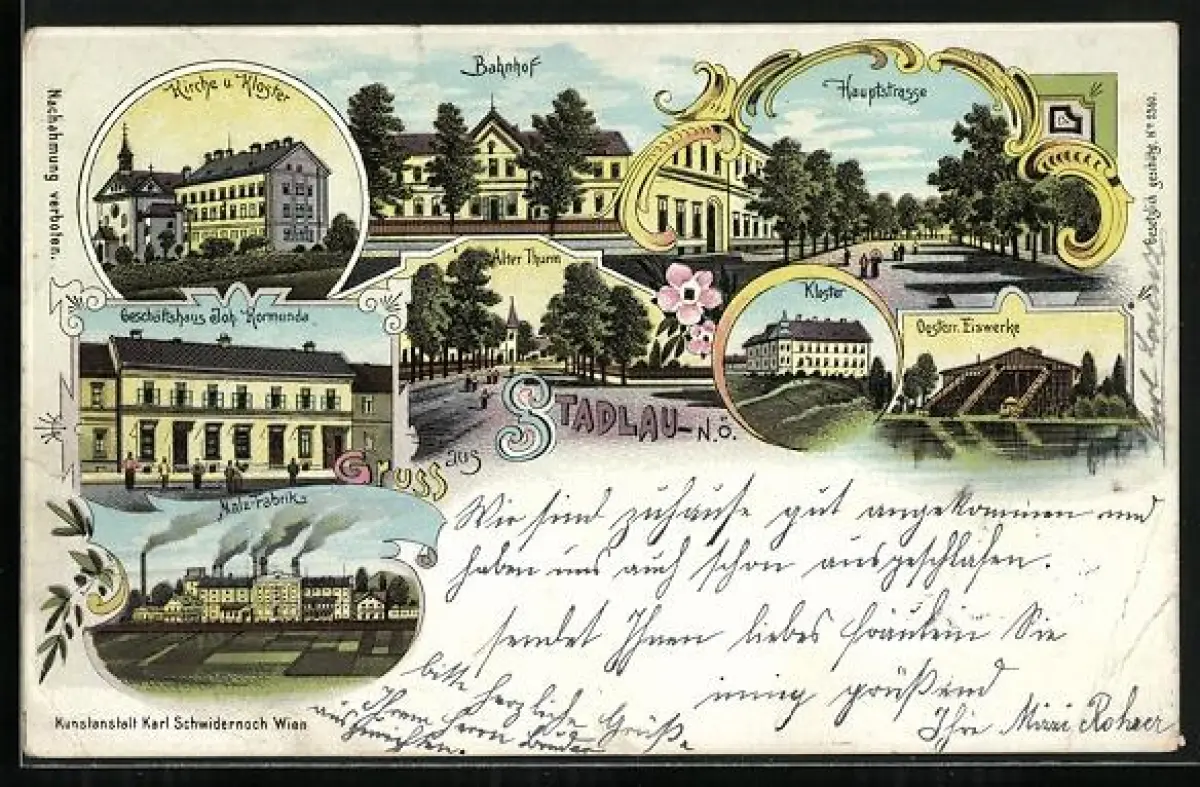 Kirche u Kloster
Bahnhof
Hauptstrasse
Nachahmung verboten.
Gesetzlich geschützt No 2340.
Alter Thurm
Kloster
Oesterr. Eiswerke
Geschäftshaus Joh. Kormunda
Gruss aus STADLAU-N.Ö.
Malz-Fabrik
Wir sind zuhause gut angekommen und
haben uns auch schon ausgeschlafen.
sendet Ihnen liebes Fräulein Sie
innig grüßend
Ihre Mizzi
bitte herzliche Grüße
Ihrem Herrn Bruder
Kunstanstalt Karl Schwidernoch Wien